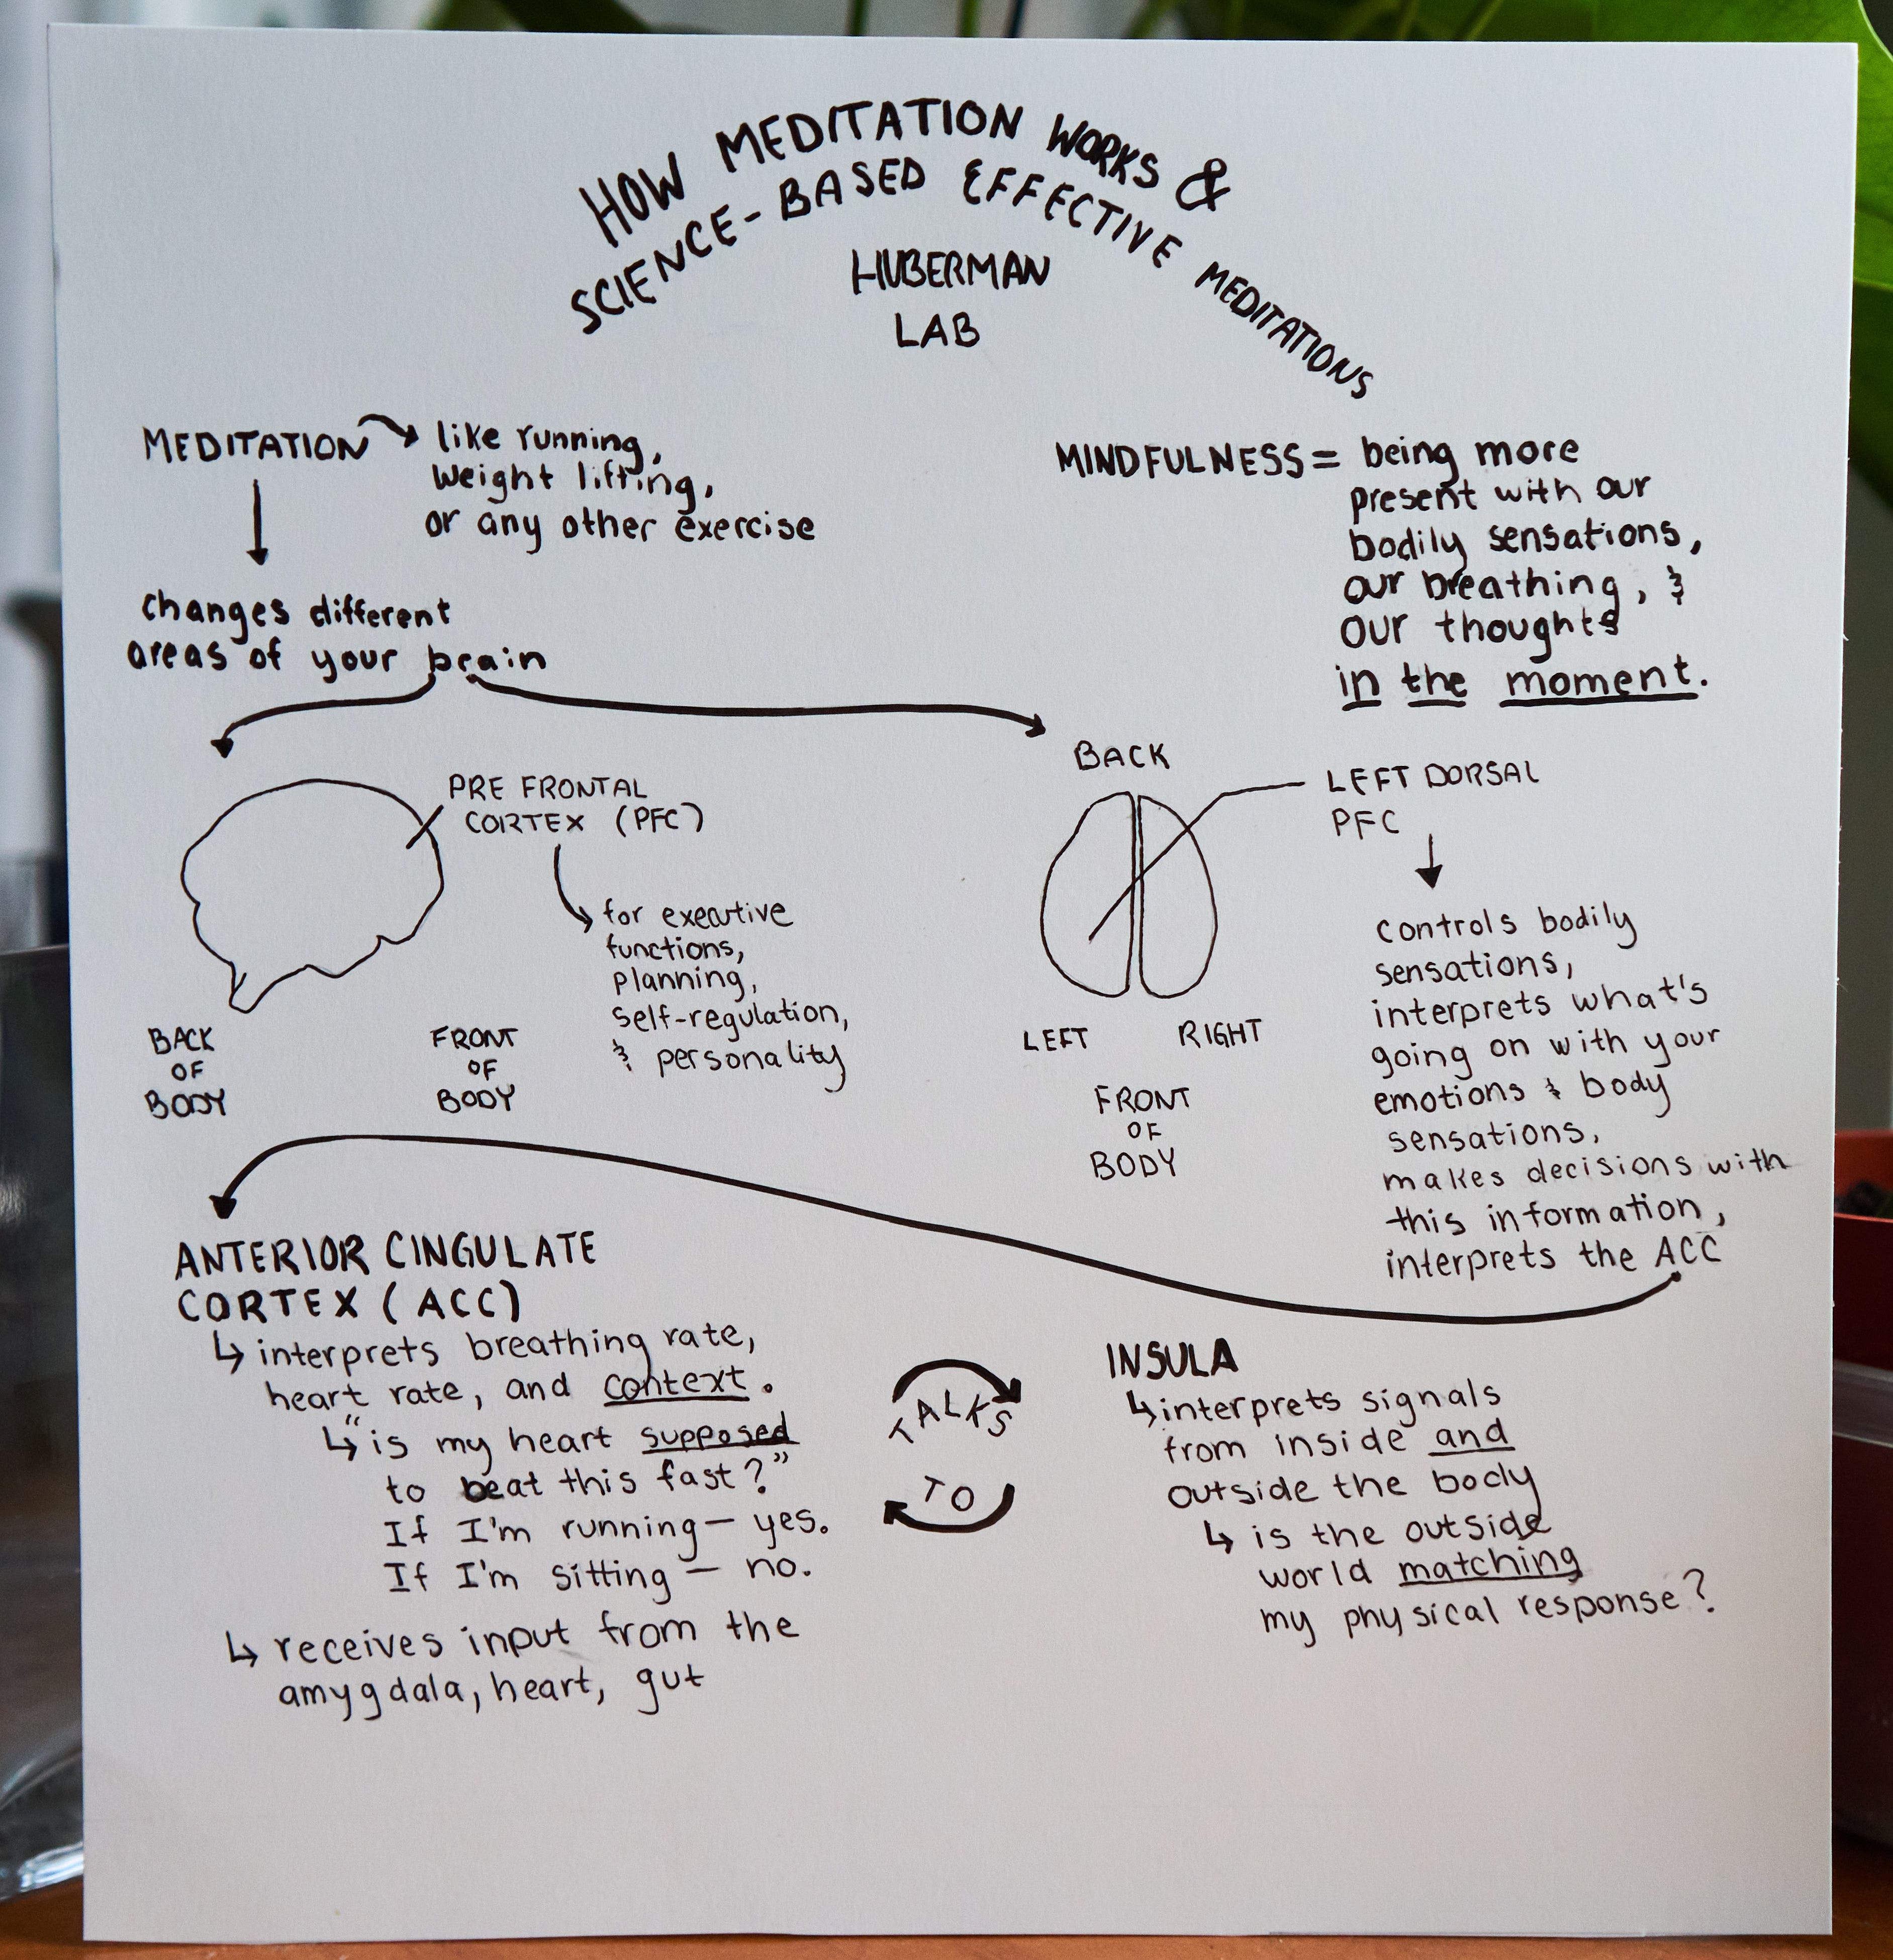 HOW MEDITATION WORKS &
SCIENCE-BASED EFFECTIVE MEDITATIONS
HUBERMAN
LAB
MEDITATION
like running,
weight lifting,
or any other exercise
changes different
areas of your brain
MINDFULNESS = being more
present with our
bodily sensations,
our breathing, &
our thoughts
in the moment.
PRE FRONTAL
CORTEX (PFC)
for executive
functions,
planning,
self-regulation,
& personality
BACK
OF
BODY
FRONT
OF
BODY
BACK
LEFT DORSAL
PFC
LEFT RIGHT
FRONT
OF
BODY
controls bodily
sensations,
interprets what's
going on with your
emotions & body
sensations,
makes decisions with
this information,
interprets the ACC
ANTERIOR CINGULATE
CORTEX (ACC)
↳ interprets breathing rate,
heart rate, and context.
↳ "is my heart supposed
to beat this fast?"
If I'm running — yes.
If I'm sitting — no.
↳ receives input from the
amygdala, heart, gut
TALKS
TO
INSULA
↳ interprets signals
from inside and
outside the body
↳ is the outside
world matching
my physical response?